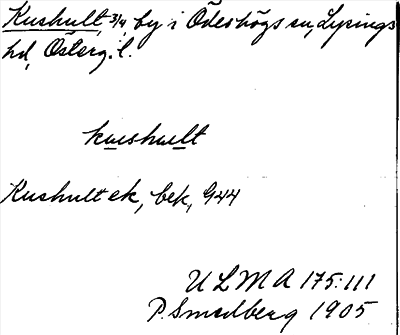 Kushult, 3/4, by i Ödeshögs sn, Lysings
hd, Österg. l.
kushult
Kushult ek, bek, G44
ULMA 175:111
P. Smedberg 1905